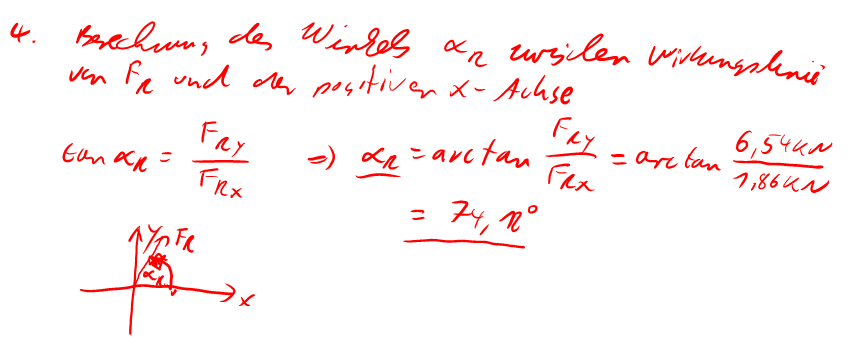 4. Berechnung des Winkels αR zwischen Wirkungslinie
von FR und der positiven x-Achse
tan αR = FRy / FRx ⇒ αR = arctan FRy / FRx = arctan 6,54kN / 1,86kN
= 74,12°
y FR
αR
x